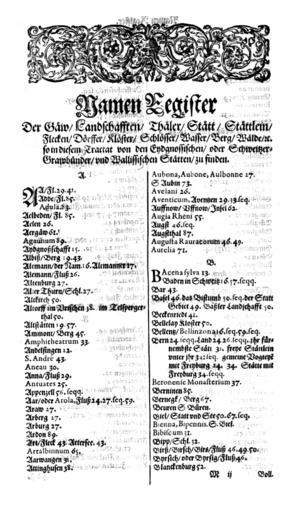 Namen Register
Der Gäw/ Landschafften/ Thäler/ Stätt/ Stättlein/
Flecken/ Dörffer/ Klöster/ Schlösser/ Wasser/ Berg/ Wälde/ꝛc.
so in diesem Tractat von den Eydgnossischen/ oder Schweitzer-
Grawbünder/ und Wallissischen Stätten/ zu finden.
A.
Aa/Fl. 29. 41.
Adde/Fl. 85.
Aelbeden/ Fl. 85.
Aelen 26.
Aergäu 6.
Agaunum 89.
Albiß/ Berg 19. 43.
Alemann/ der Nam 16. Alemannier 17.
Alemann/ Fluß 26.
Altenburg 27.
Alter Thurn/ Schl. 27.
Altkirch 50.
Altorff im 38. im
thal 50.
Altstätten 19. 57.
Ammon/ Berg 45.
Amphitheatrum 33.
Andelfingen 12.
S. André 43.
Aneau 30.
Anna/ Fluß 29.
Antuates 25.
Appenzell 50. seqq.
Aar/ oder Arola, Fluß 24. 27. seq. 59.
Araw 27.
Arberg 27.
Arburg 27.
Ardon 89.
Art/ Fleck 43. 43.
Artalbinnum 65.
Aarwangen 31.
Attinghusen 38.
Aubona, Aubone, Aulbonne 27.
S Aubin 73.
Avelani 26.
Aventicum, Aventen 29. 13. seq.
Auffnow/ Uffnow/ Insel 62.
Augia Rheni 55.
Augst 46. seq.
Augstthal 87.
Augusta Rauracorum 46. 49.
Aurelia 71.
B.
Bacenasylva 13.
Baden in Schweitz 16. 17. seqq.
Bar 43.
Basel 46. das Bisthumb 50. seq. der Statt
Gebiet 49. Baßler Landschafft 50.
Beckenriedt 41.
Bellelay Kloster 50.
Bellenz/ Bellinzona 26. seq. 59. seq.
Bern 24. seqq. Land 24 26. seqq. ihr für-
nembste Stätt 31. freye Ständlein
unter ihr 34: seq. gemeine Vogteyt
mit Freyburg 24. 34. Stätte mit
Freyburg 34. seqq.
Beronense Monasterium 37.
Berninen 85.
Bernegk/ Berg 67.
Beuren S. Büren.
Biel/ Statt und See 50. 67. seq.
Bienna, Bipennis, S. Biel.
Bibiscum 31.
Bipp/ Schl. 32.
Birß/ Birsch/ Birs/ Fluß 46. 49. 50.
Byrsich/ oder Byrsig/ Fluß 46.
Blanckenburg 52.
M ij
Boll.